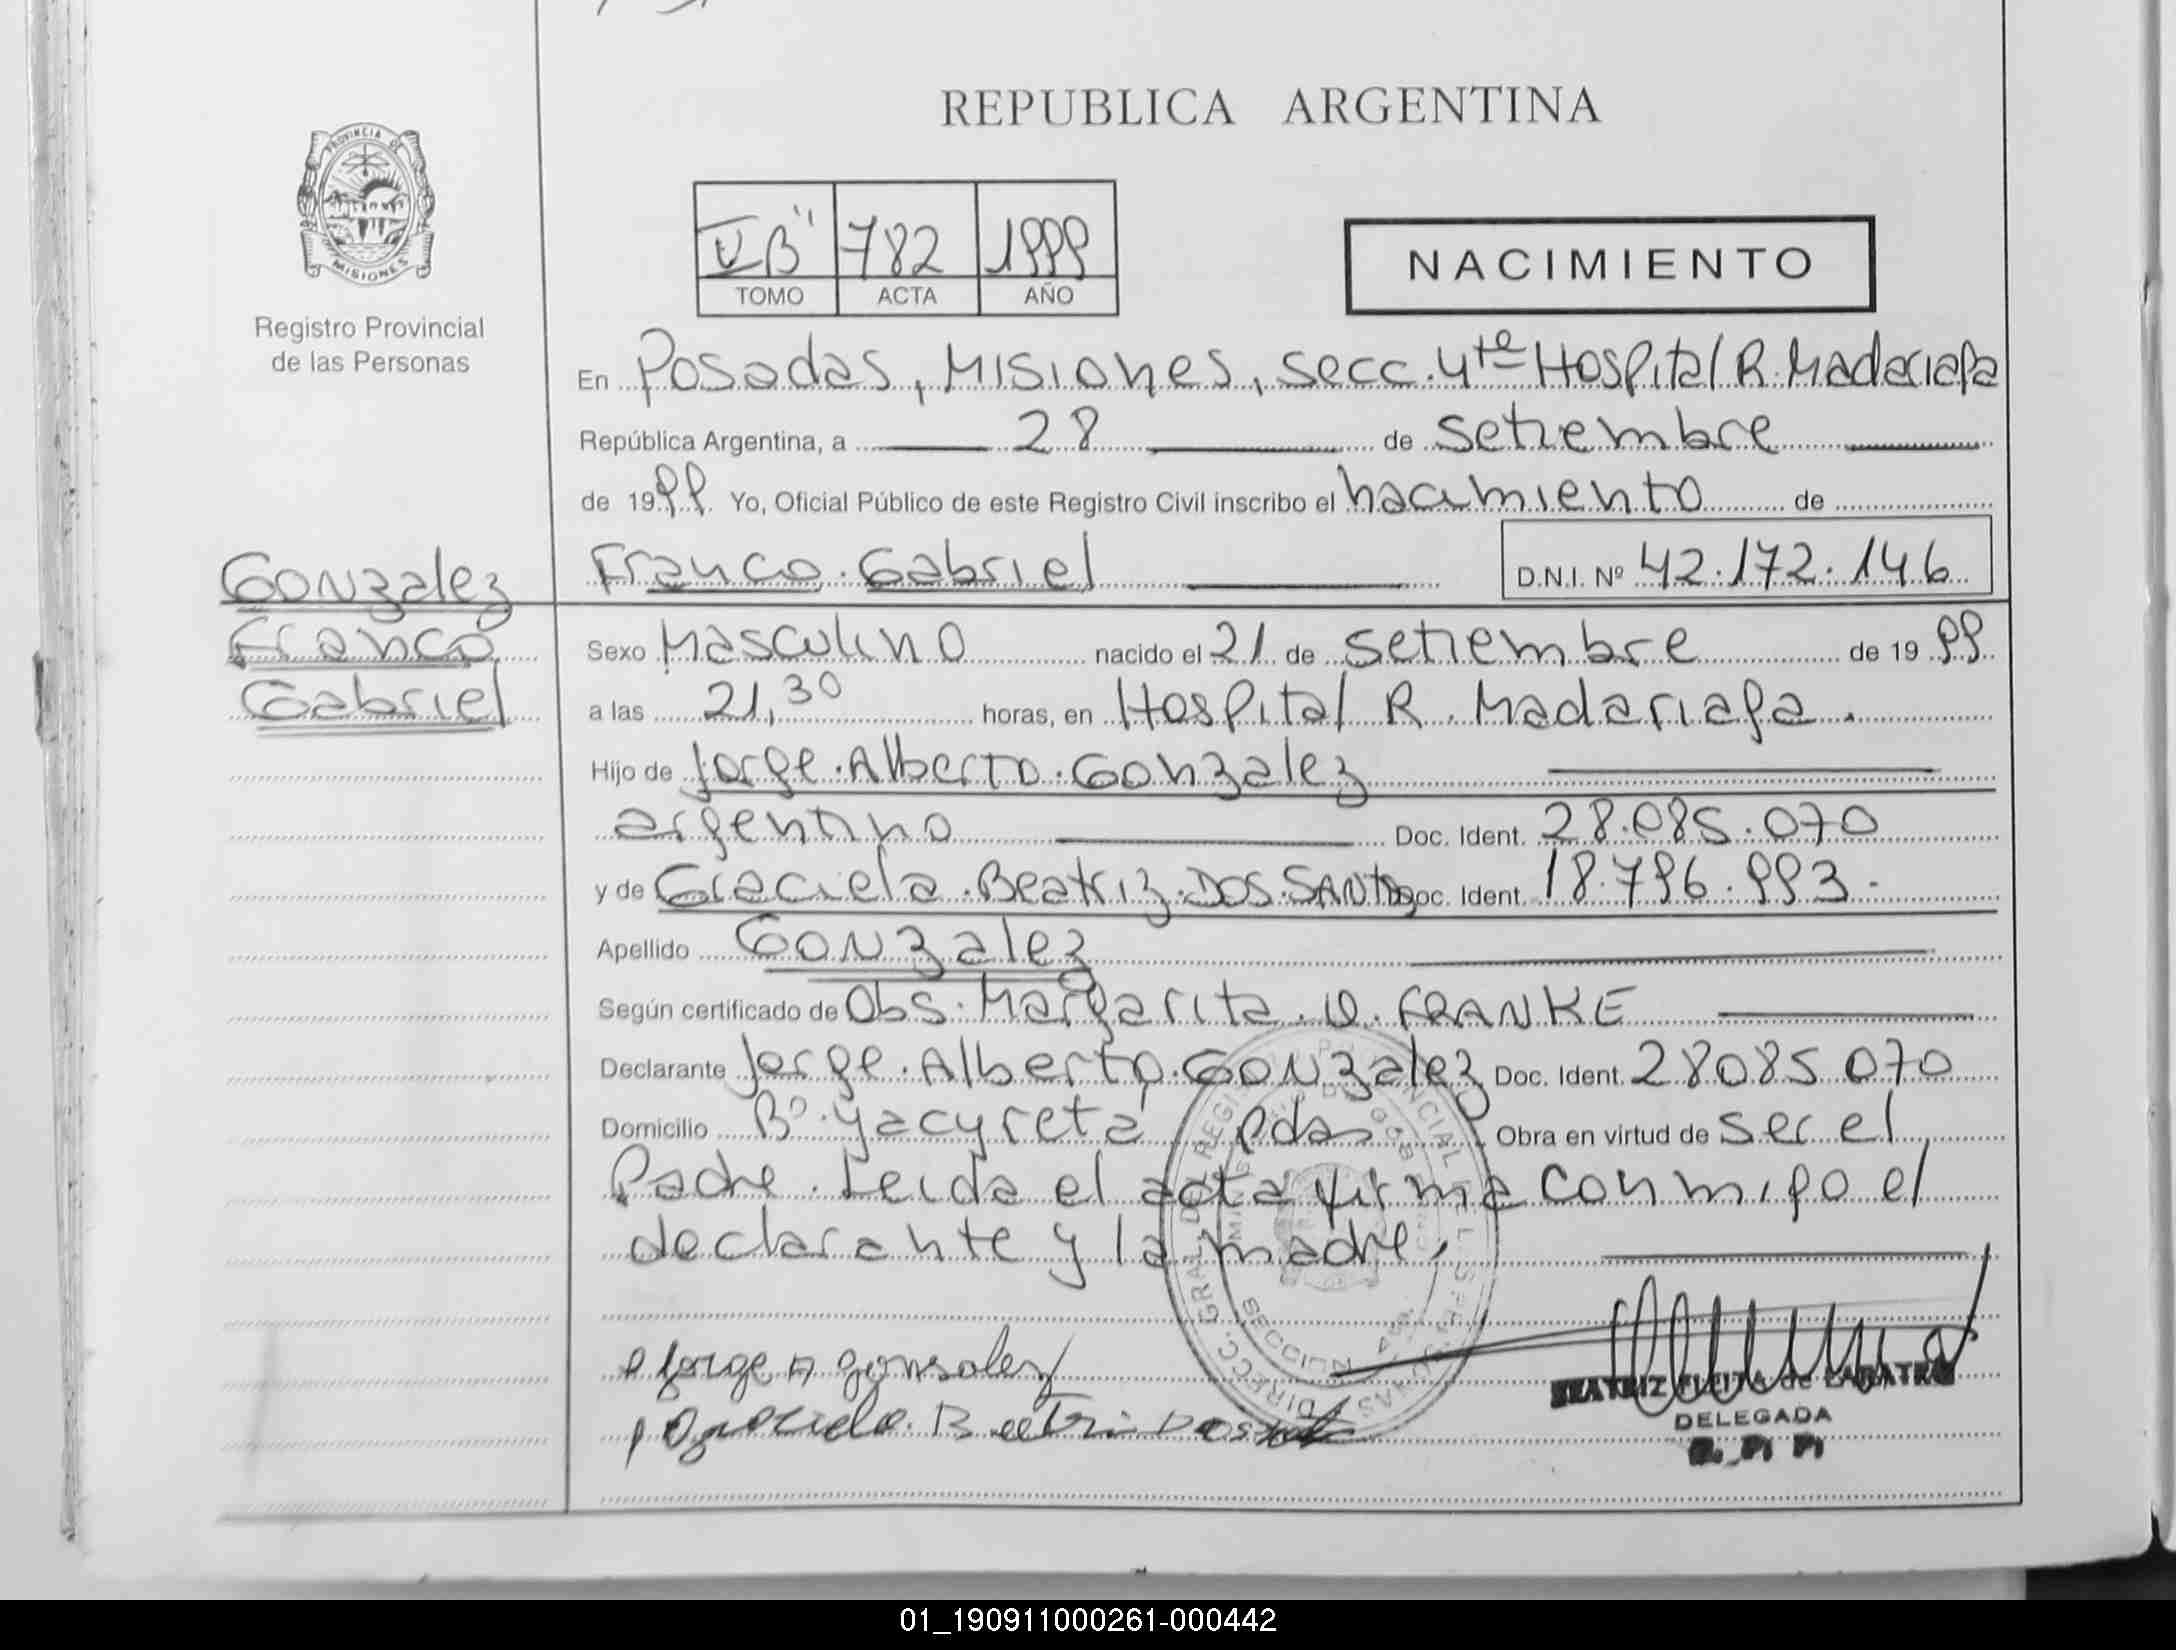 REPUBLICA ARGENTINA
PROVINCIA DE MISIONES
Registro Provincial
de las Personas
V B" 782 1999
TOMO ACTA AÑO
NACIMIENTO
En Posadas, Misiones, secc. 4te Hospital R. Madariaga
República Argentina, a 28 de setiembre
de 1999 Yo, Oficial Público de este Registro Civil inscribo el nacimiento de
Franco. Gabriel D.N.I. Nº 42.172.146
Gonzalez
Franco
Gabriel
Sexo Masculino nacido el 21 de setiembre de 1999
a las 21,30 horas, en Hospital R. Madariaga.
Hijo de Jorge. Alberto. Gonzalez
argentino Doc. Ident. 28.085.070
y de Graciela. Beatriz. DOS. SANTOS Doc. Ident. 18.796.993.
Apellido Gonzalez
Según certificado de Obs. Margarita. O. FRANKE
Declarante Jorge. Alberto. Gonzalez Doc. Ident. 28085070
Domicilio Bº. Yacyreta Pdas Obra en virtud de ser el
Padre. Leida el acta firma conmigo el
declarante y la madre.
Jorge A gonsalez
BEATRIZ FLEITA de
DELEGADA
01_190911000261-000442